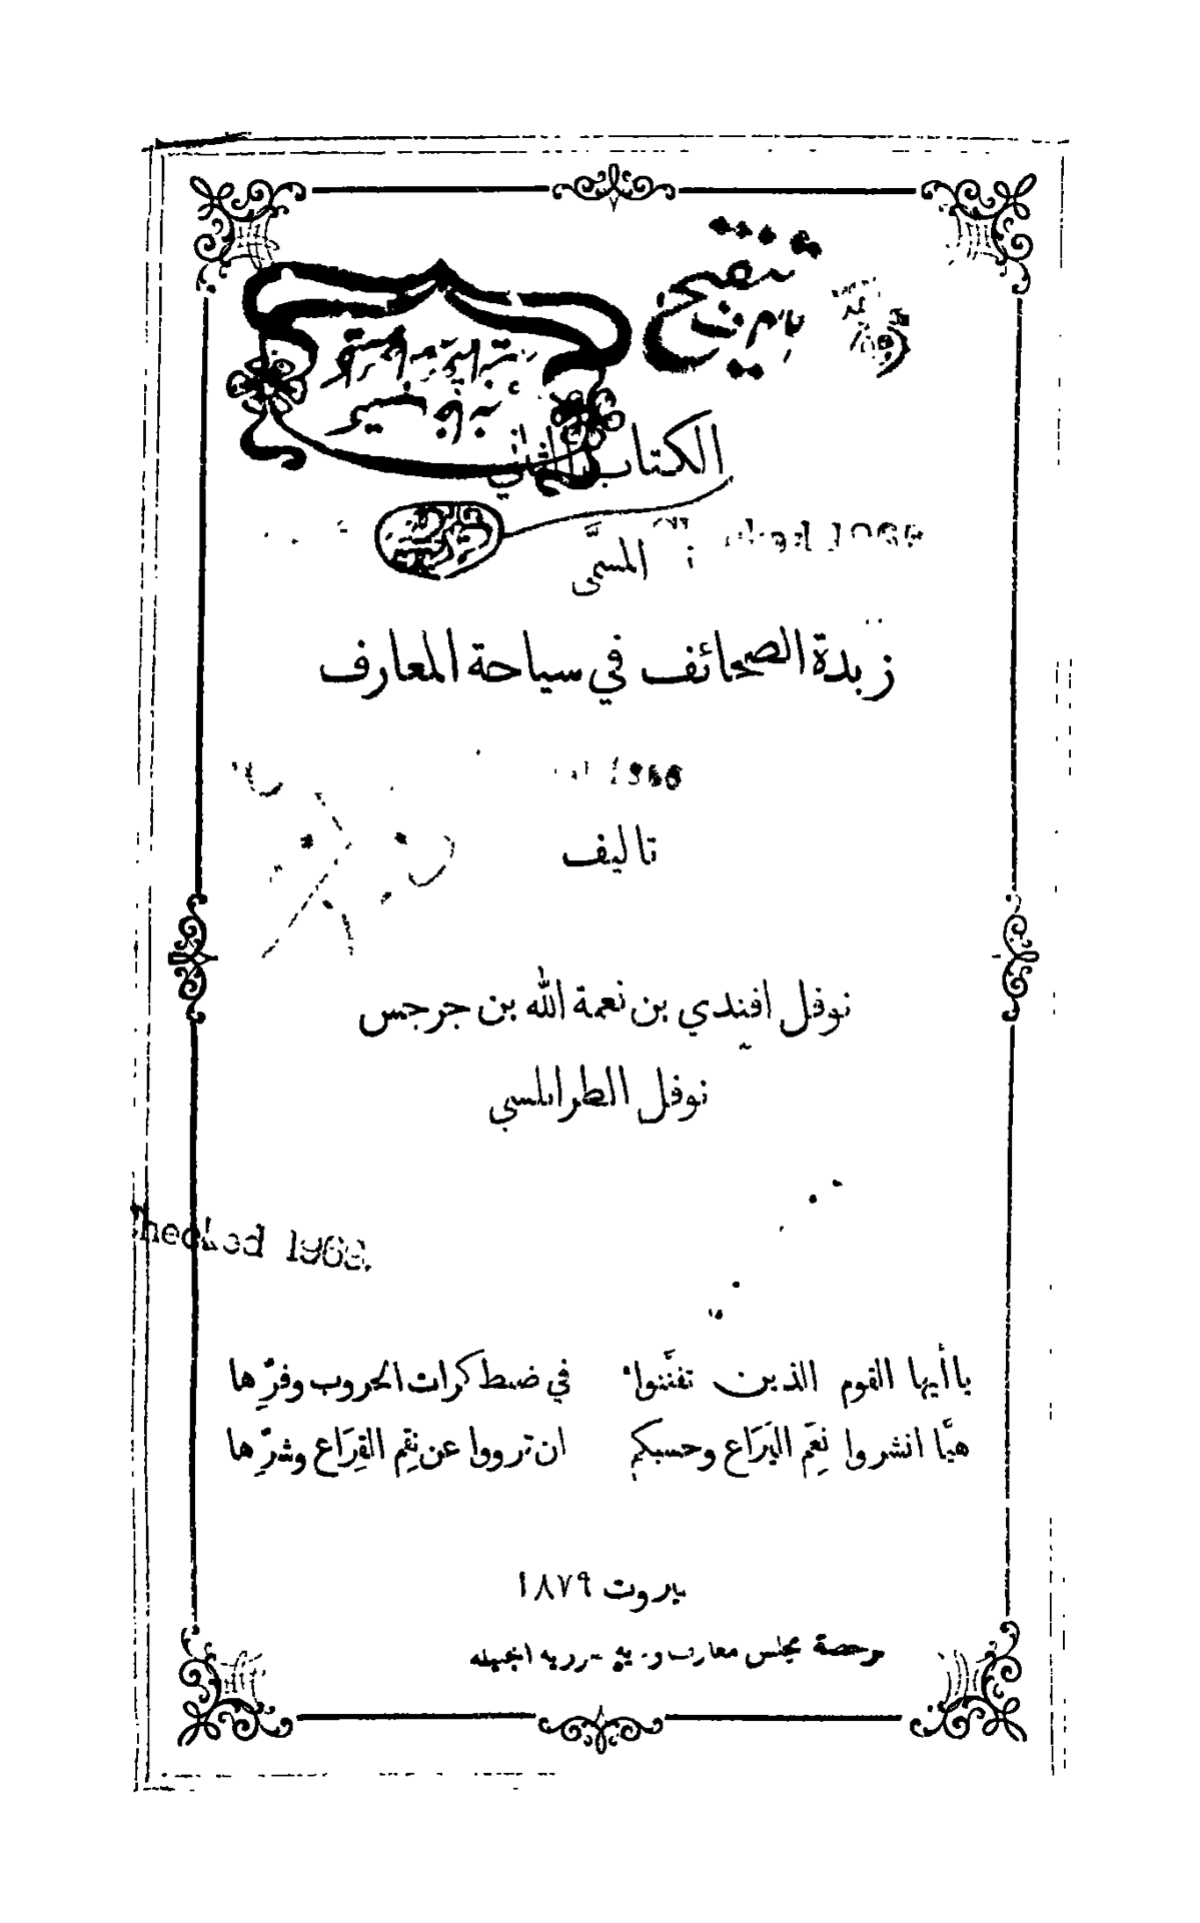 الكتاب الثاني
المسمَّى
زبدة الصحائف في سياحة المعارف
1966
تاليف
نوفل افيندي بن نعمة الله بن جرجس
نوفل الطرابلسي
Checked 1969.
يا أيها القوم الذين تفنَّنوا في ضبط كرات الحروب وفرِّها
هيَّا انشروا نِعَم اليَرَاع وحسبكم ان ترووا عن نِقَم القِرَاع وشرِّها
بيروت ١٨٧٩
برخصة مجلس معارف الجليلة